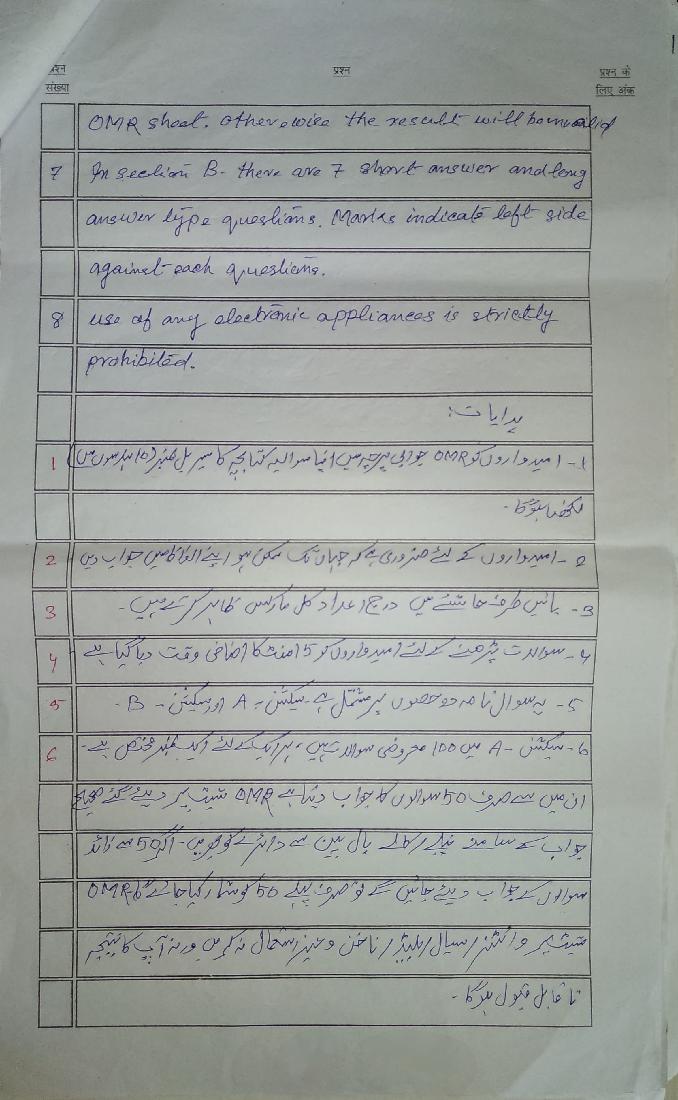 प्रश्न संख्या प्रश्न प्रश्न के लिए अंक
OMR sheet. Otherwise the result will be invalid
7 In section B- there are 7 short answer and long
answer type questions. Marks indicate left side
against each questions.
8 use of any electronic appliances is strictly
prohibited.
ہدایات:
1 1- امیدواروں کو OMR جوابی پرچہ میں اپنا سوالیہ کتابچہ کا سیریل نمبر (10 ہندسوں میں
لکھنا ہوگا۔
2 2- امیدواروں کے لئے ضروری ہے کہ جہاں تک ممکن ہو اپنے الفاظ میں جواب دیں
3 3- بائیں طرف حاشئے میں درج اعداد کل مارکس ظاہر کرتے ہیں۔
4 4- سوالات پڑھنے کے لئے امیدواروں کو 15 منٹ کا اضافی وقت دیا گیا ہے
5 5- یہ سوال نامہ دو حصوں پر مشتمل ہے۔ سیکشن - A اور سیکشن - B۔
6 6- سیکشن - A میں 100 معروضی سوالات ہیں، ہر ایک کے لئے ایک نمبر مختص ہے۔
ان میں سے صرف 50 سوالوں کا جواب دینا ہے OMR شیٹ پر دیئے گئے صحیح
جواب کے سامنے نیلے / کالے بال پین سے دائرے کو بھریں۔ اگر 50 سے زائد
سوالوں کے جواب دیئے جائیں گے تو صرف پہلے 50 کو شمار کیا جائے گا OMR
شیٹ پر وائٹنر / سیال / بلیڈ / ناخن وغیرہ استعمال نہ کریں ورنہ آپ کا نتیجہ
ناقابل قبول ہوگا۔